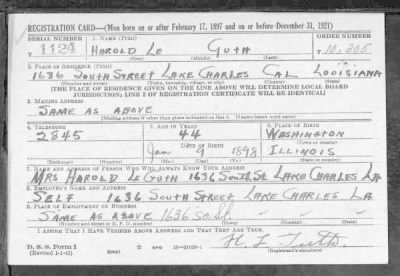 REGISTRATION CARD—(Men born on or after February 17, 1897 and on or before December 31, 1921)
SERIAL NUMBER 1. NAME (Print) ORDER NUMBER
U 1124 HAROLD LE GUTH 10,205
(First) (Middle) (Last)
2. PLACE OF RESIDENCE (Print)
1636 SOUTH STREET LAKE CHARLES CAL LOUISIANA
(Number and street) (Town, township, village, or city) (County) (State)
[THE PLACE OF RESIDENCE GIVEN ON THE LINE ABOVE WILL DETERMINE LOCAL BOARD
JURISDICTION; LINE 2 OF REGISTRATION CERTIFICATE WILL BE IDENTICAL]
3. MAILING ADDRESS
SAME AS ABOVE
[Mailing address if other than place indicated on line 2. If same insert word same]
4. TELEPHONE 5. AGE IN YEARS 6. PLACE OF BIRTH
2845 44 WASHINGTON
DATE OF BIRTH (Town or county)
Jan 9 1898 ILLINOIS
(Exchange) (Number) (Mo.) (Day) (Yr.) (State or country)
7. NAME AND ADDRESS OF PERSON WHO WILL ALWAYS KNOW YOUR ADDRESS
MRS HAROLD LE GUTH 1636 SOUTH ST LAKE CHARLES LA
8. EMPLOYER'S NAME AND ADDRESS
SELF 1636 SOUTH STREET LAKE CHARLES LA
9. PLACE OF EMPLOYMENT OR BUSINESS
SAME AS ABOVE 1636 SO. St. " " "
(Number and street or R. F. D. number) (Town) (County) (State)
I AFFIRM THAT I HAVE VERIFIED ABOVE ANSWERS AND THAT THEY ARE TRUE.
D. S. S. Form 1
(Revised 1-1-42) GPO H. L. Guth